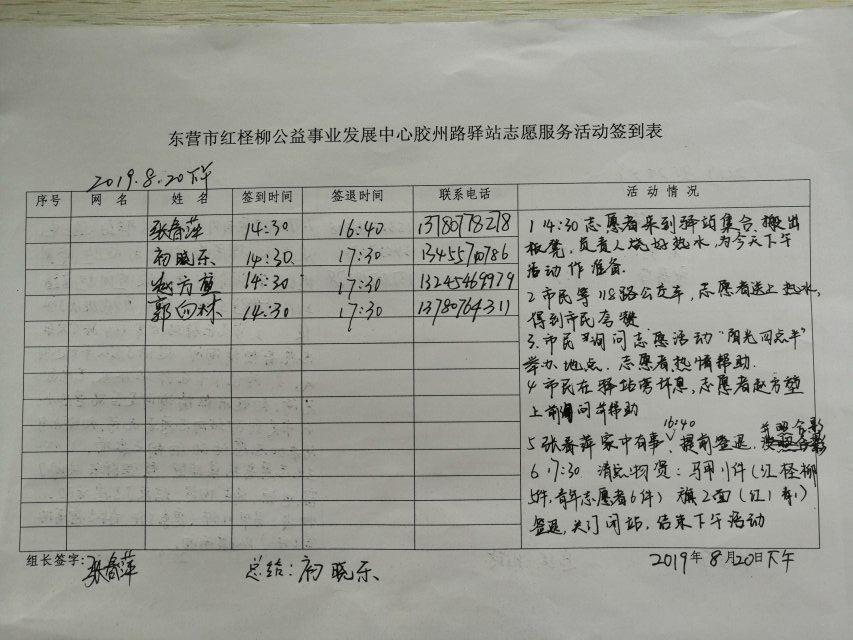 东营市红柽柳公益事业发展中心胶州路驿站志愿服务活动签到表
2019.8.20下午
序号 网名 姓名 签到时间 签退时间 联系电话 活动情况
张春萍 14:30 16:40 13780778278
初晓东 14:30 17:30 13455710786
赵方塹 14:30 17:30 13245469979
郭向林 14:30 17:30 13780764311
1 14:30志愿者来到驿站集合.搬出
板凳,负责人烧好热水,为今天下午
活动作准备.
2 市民等118路公交车,志愿者送上热水,
得到市民夸赞.
3.市民询问志愿活动"阳光四点半"
举办地点.志愿者热情帮助.
4 市民在驿站旁休息,志愿者赵方塹
上前询问并帮助
5 张春萍家中有事,16:40提前签退,并照合影
6 17:30 清点物资:马甲11件(红柽柳
5件,青年志愿者6件) 旗2面(红1 青1)
签退,关门闭站,结束下午活动
组长签字:张春萍 总结:初晓东 2019年8月20日下午